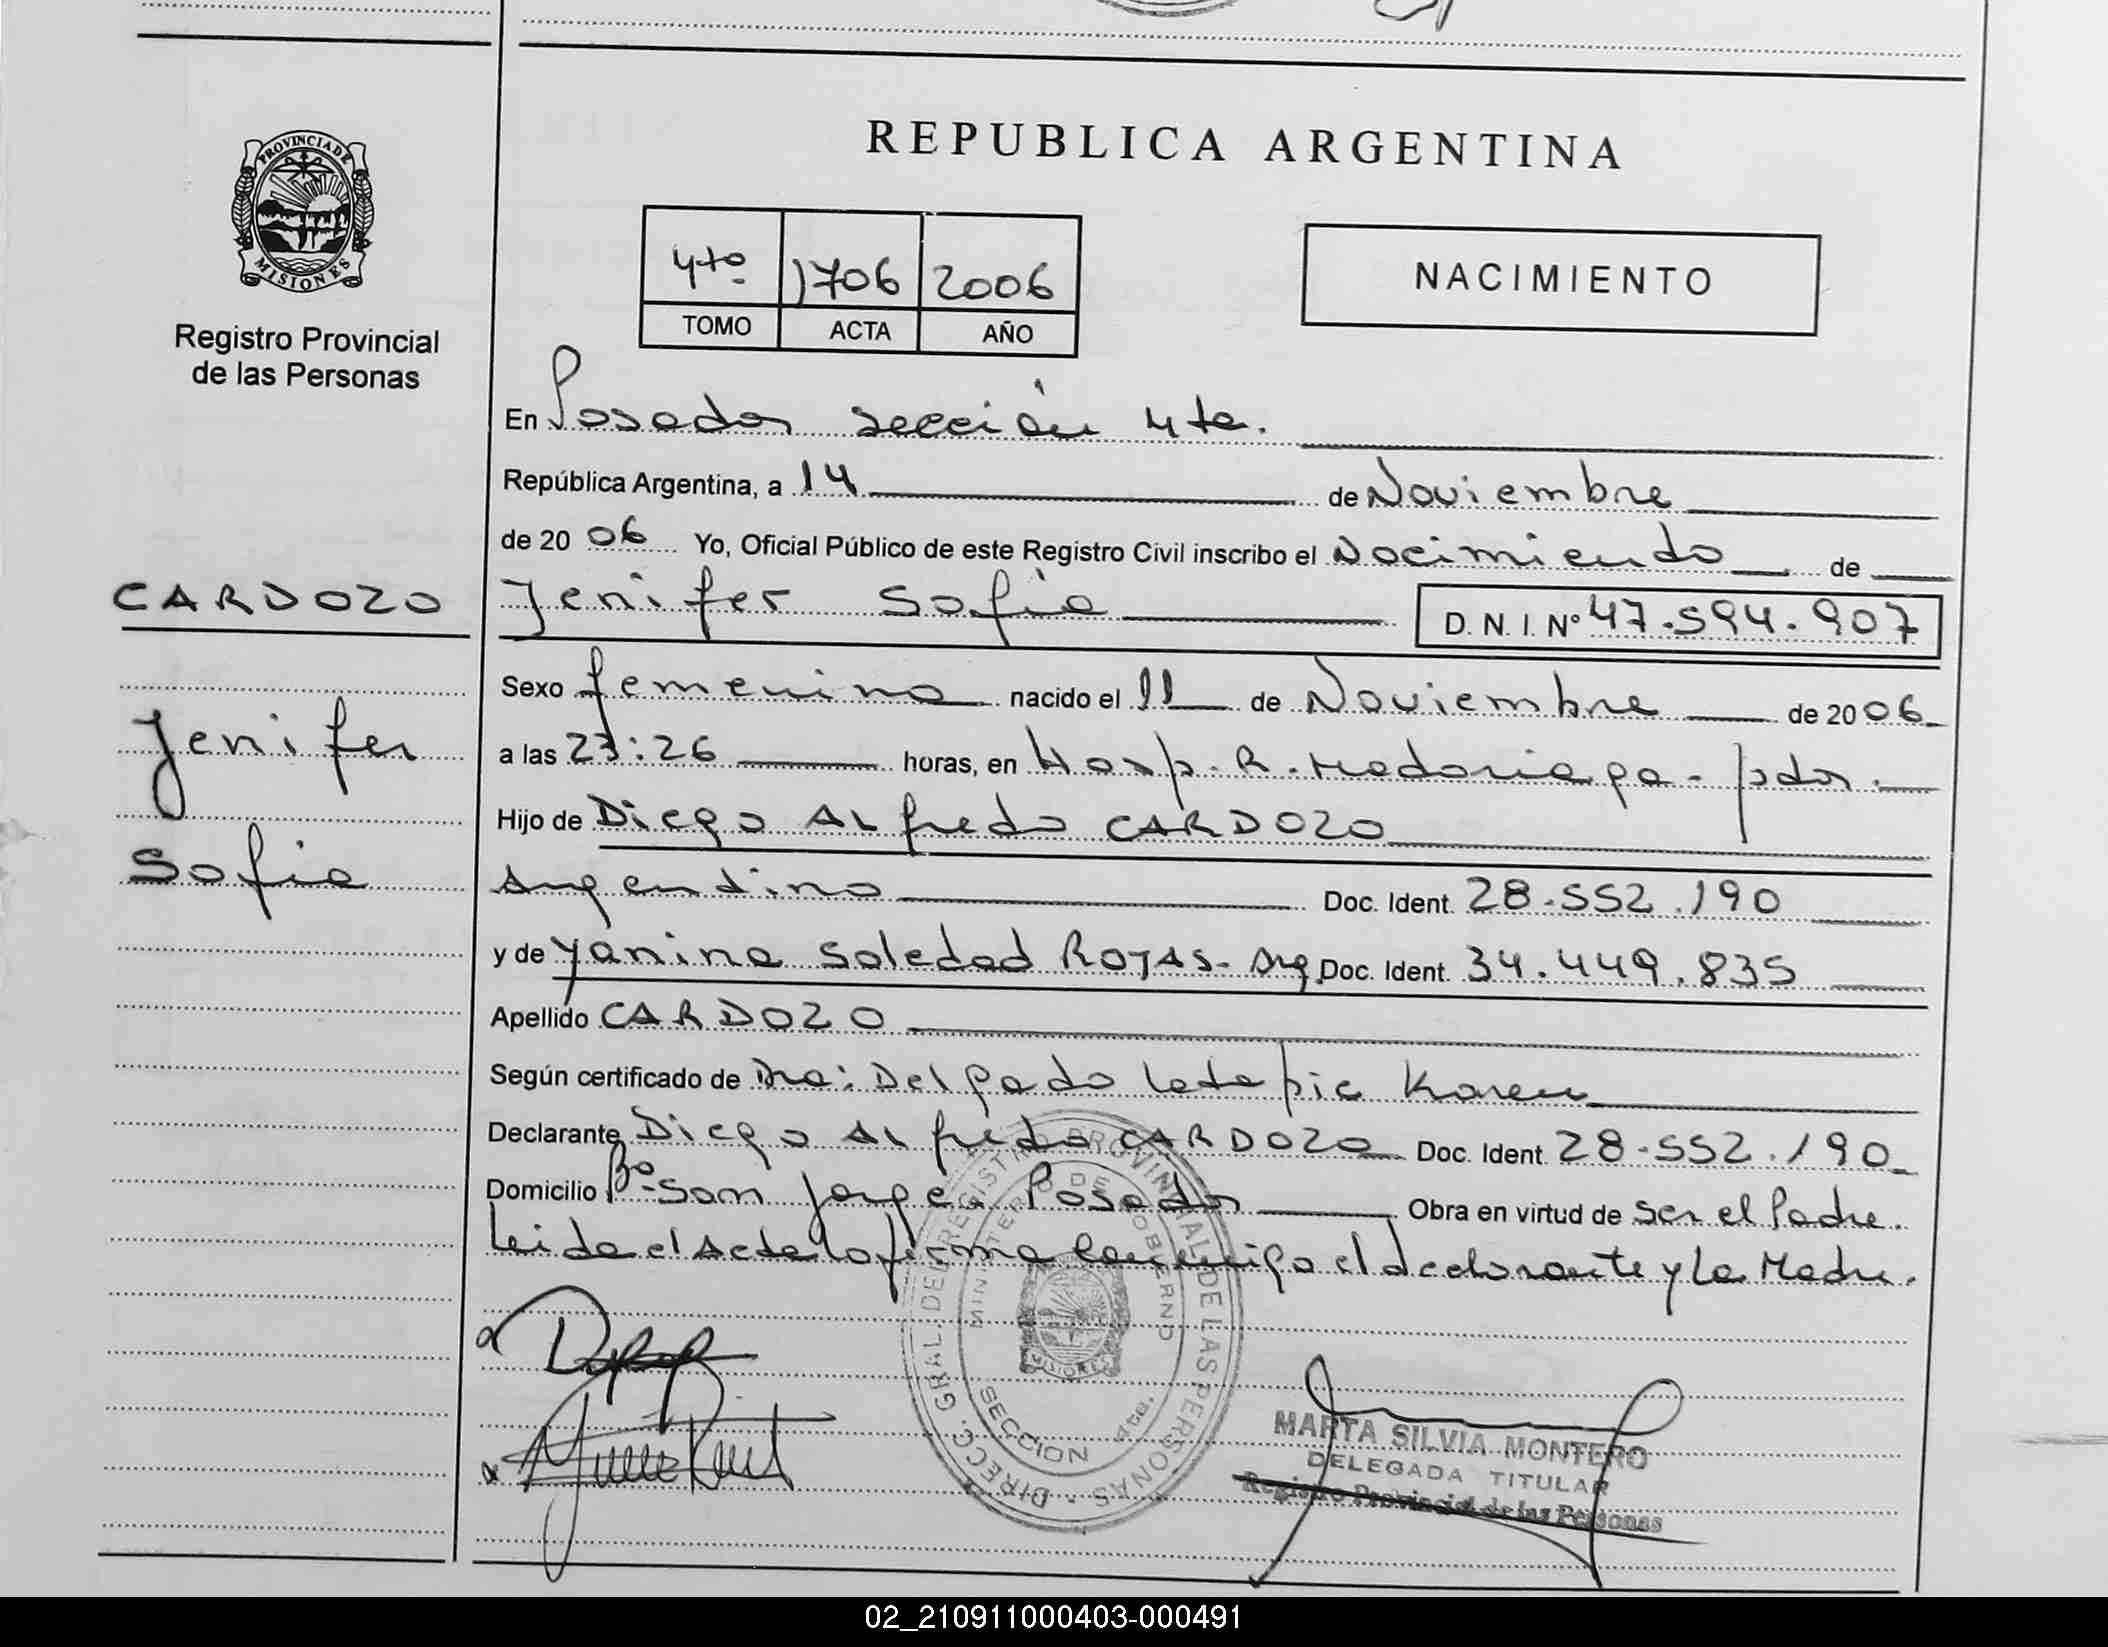 REPUBLICA ARGENTINA
PROVINCIA DE MISIONES
Registro Provincial
de las Personas
4to 1706 2006
TOMO ACTA AÑO
NACIMIENTO
En Posadas sección 4ta.
República Argentina, a 14 de Noviembre
de 2006 Yo, Oficial Público de este Registro Civil inscribo el Nacimiento de
CARDOZO
Jenifer Sofia D. N. I. Nº 47.594.907
Sexo femenino nacido el 11 de Noviembre de 2006
Jenifer
a las 23:26 horas, en Hosp. R. Madariaga - Pdas.
Hijo de Diego Alfredo CARDOZO
Sofia
Argentino Doc. Ident. 28.552.190
y de Yanina Soledad ROJAS - Arg Doc. Ident. 34.449.835
Apellido CARDOZO
Según certificado de Dra: Delgado Letapie Karen
Declarante Diego Alfredo CARDOZO Doc. Ident. 28.552.190
Domicilio Bº San Jorge Posadas Obra en virtud de ser el Padre.
Leida el Acta la firma conmigo el declarante y la Madre.
DIRECC. GRAL DEL REGISTRO PROVINCIAL DE LAS PERSONAS
MINISTERIO DE GOBIERNO
MISIONES
SECCION 4ta.
MARTA SILVIA MONTERO
DELEGADA TITULAR
Registro Provincial de las Personas
02_210911000403-000491